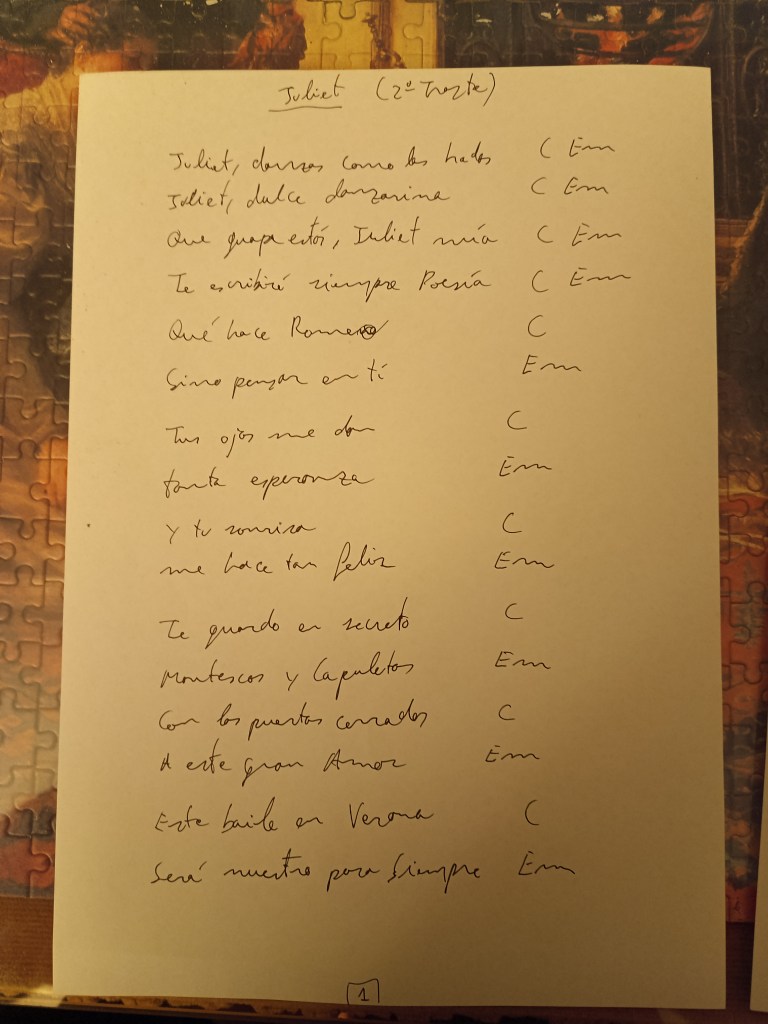 Juliet (2º Traste)
Juliet, danzas como las hadas C Em
Juliet, dulce danzarina C Em
Que guapa estás, Juliet mía C Em
Te escribiré siempre Poesía C Em
Qué hace Romeo C
Sino pensar en tí Em
Tus ojos me dan C
tanta esperanza Em
y tu sonrisa C
me hace tan feliz Em
Te guardo en secreto C
Montescos y Capuletos Em
Con las puertas cerradas C
A este gran Amor Em
Este baile en Verona C
Será nuestro para Siempre Em
1